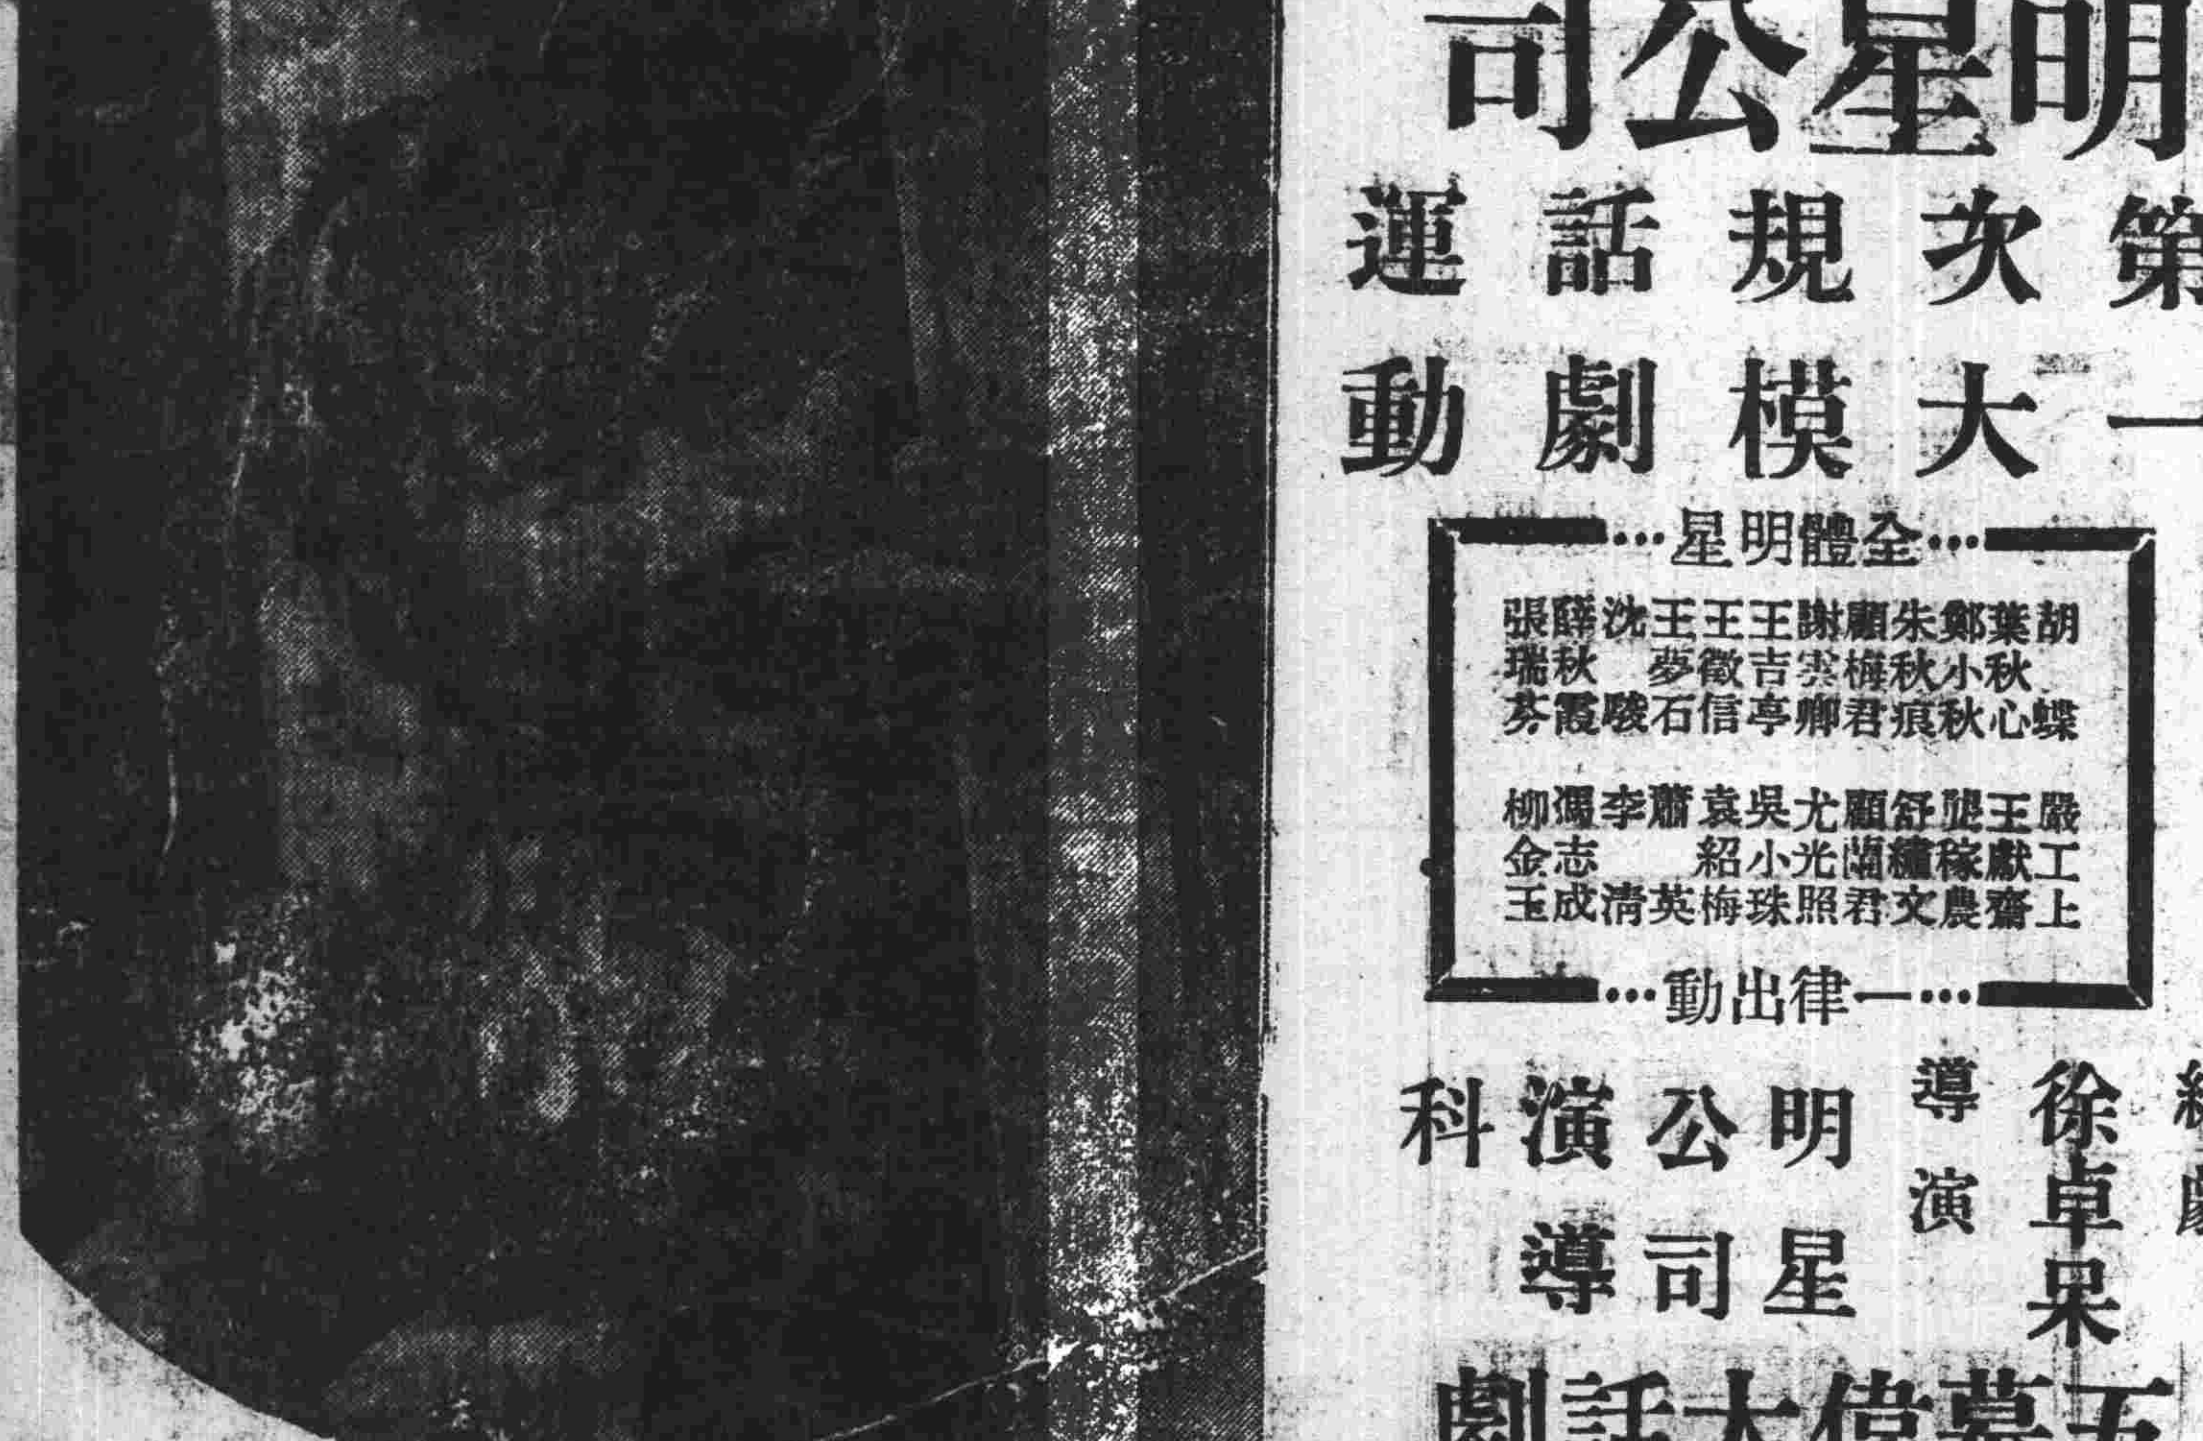 明星公司
第一
次大
規模
話劇
運動
全體明星
胡蝶
葉秋心
鄭小秋
朱秋痕
顧梅君
謝雲卿
王吉亭
王徵信
王夢石
沈駿
薛秋霞
張瑞芬
嚴工上
王獻齋
龔稼農
舒繡文
顧蘭君
尤光照
吳小珠
袁紹梅
蕭英
李清
馮志成
柳金玉
一律出動
徐卓呆
導演
明星
公司
演導
科
五幕偉大話劇